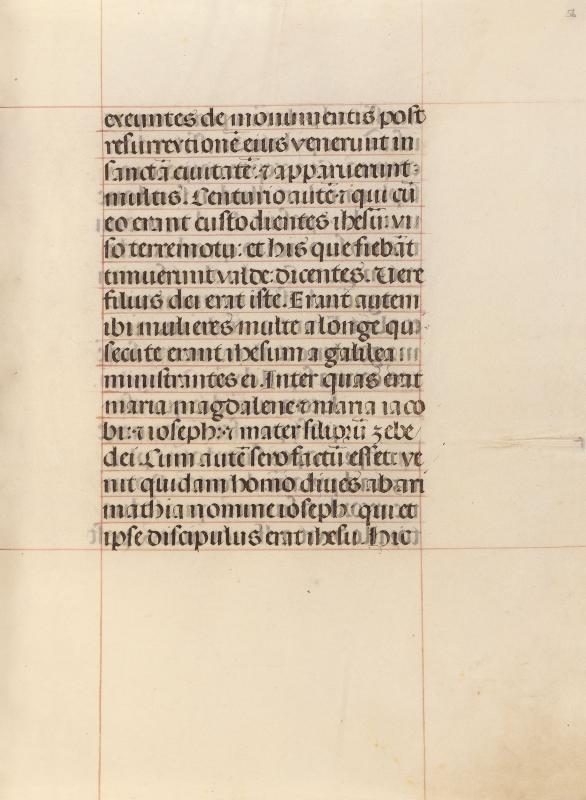 exeuntes de monumentis post
resurrectionē eius venerunt in
sanctā ciuitatē: ⁊ apparuerunt
multis. Centurio autē ⁊ qui cū
eo erant custodientes ihesū: vi
so terremotu: et his que fiebāt
timuerunt valde: dicentes. Uere
filius dei erat iste. Erant autem
ibi mulieres multe a longe qui
secute erant ihesum a galilea
ministrantes ei. Inter quas erat
maria magdalene ⁊ maria iaco
bi: ⁊ ioseph: ⁊ mater filiorū zebe
dei. Cum autē sero factū esset: ve
nit quidam homo diues ab ari
mathia nomine ioseph: qui et
ipse discipulus erat ihesu. Hic